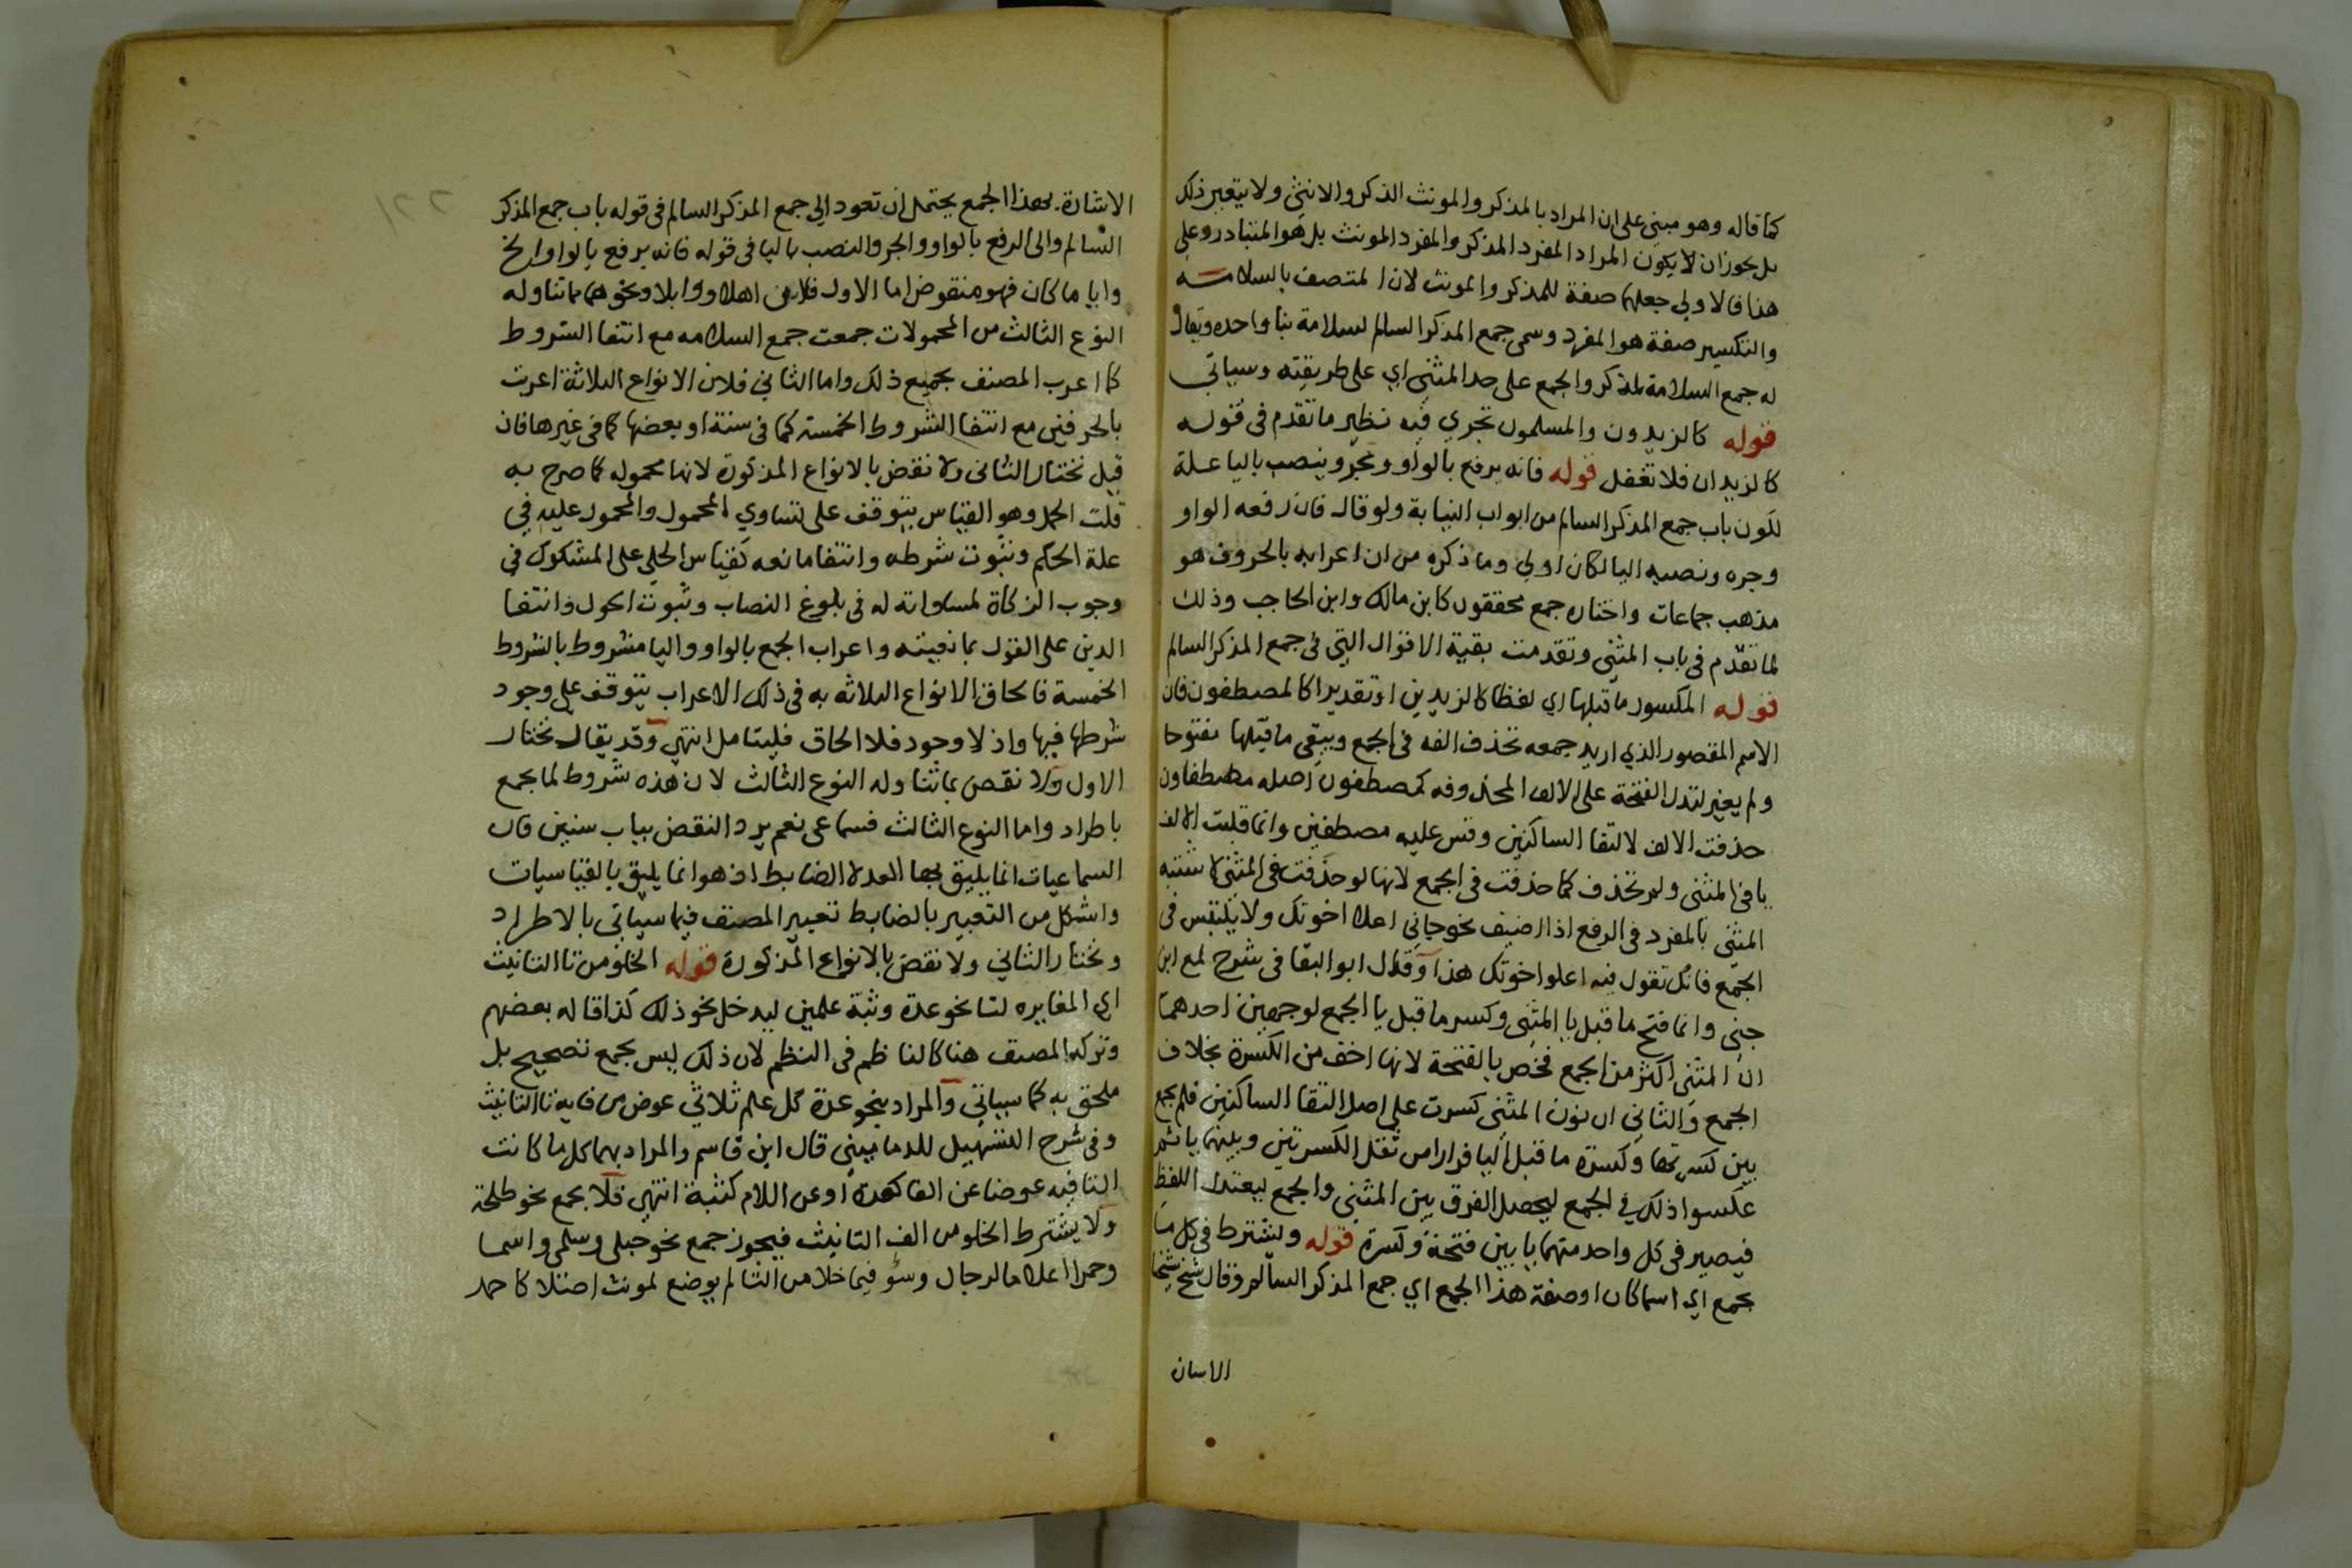 كما قاله وهو مبني على ان المراد بالمذكر والمونث الذكر والانثى ولا يتعير ذلك
بل يجوز ان لا يكون المراد المفرد المذكر والمفرد المونث بل هو المتبادر وعلى
هذا فالاولى جعلهما صفة للمذكر والمونث لان المتصف بالسلامة
والتكسير صفة هو المفرد وسمى جمع المذكر السالم لسلامة بنا واحده ويقال
له جمع السلامة لمذكر والجمع على حد المثنى اي على طريقته وسياتي
قوله كالزيدون والمسلمون تجري فيه نظير ما تقدم في قوله
كالزيدان فلا تغفل قوله فانه يرفع بالواو ويجر وينصب باليا علة
لكون باب جمع المذكر السالم من ابواب النيابة ولو قال فان رفعه الواو
وجره ونصبه اليا لكان اولى وما ذكره من ان اعرابه بالحروف هو
مذهب جماعات واختاره جمع محققون كابن مالك وابن الحاجب وذلك
لما تقدم في باب المثنى وتقدمت بقية الاقوال التي في جمع المذكر السالم
قوله المكسور ما قبلها اي لفظا كالزيدين او تقديرا كالمصطفون فان
الاسم المقصور الذي اريد جمعه تحذف الفه في الجمع ويبقى ما قبلها مفتوحا
ولم يغير لتدل الفتحة على الالف المحذوفه كمصطفون اصله مصطفاون
حذفت الالف لالتقا الساكنين وقس عليه مصطفين وانما قلبت الالف
يا في المثنى ولم تحذف كما حذفت في الجمع لانها لو حذفت في المثنى لاشتبه
المثنى بالمفرد في الرفع اذا اضيف نحو جاني اعلا اخوتك ولا يلتبس في
الجمع فانك تقول فيه اعلوا اخوتك هذا وقال ابو البقا في شرح لمع ابن
جني وانما فتح ما قبل يا المثنى وكسر ما قبل يا الجمع لوجهين احدهما
ان المثنى اكثر من الجمع فخص بالفتحة لانها اخف من الكسرة بخلاف
الجمع والثاني ان نون المثنى كسرت على اصل التقا الساكنين فلم يجمع
بين كسرتها وكسرة ما قبل اليا فرارا من ثقل الكسرتين وبينهما يا ثم
عكسوا ذلك في الجمع ليحصل الفرق بين المثنى والجمع ليعتدل اللفظ
فيصير في كل واحد منهما يا بين فتحة وكسرة قوله ويشترط في كل ما
يجمع اي اسما كان او صفة هذا الجمع اي جمع المذكر السالم وقال شيخ شيخنا
الاسان
٢٢١
الاشارة بهذا الجمع يحتمل ان تعود الى جمع المذكر السالم في قوله باب جمع المذكر
السالم والى الرفع بالواو والجر والنصب باليا في قوله فانه يرفع بالواو الخ
وايا ما كان فهو منقوض اما الاول فلان اهلا ووابلا ونحوهما مما تناوله
النوع الثالث من المحمولات جمعت جمع السلامه مع انتفا الشروط
كما اعرب المصنف بجميع ذلك واما الثاني فلان الانواع الثلاثة اعربت
بالحرفين مع انتفا الشروط الخمسة كما في سنة او بعضها كما في غيرها فان
قيل نختار الثاني ولا نقض بالانواع المذكورة لانها محموله كما صرح به
قلت الحمل وهو القياس يتوقف على تساوي المحمول والمحمول عليه في
علة الحكم وثبوت شرطه وانتفا مانعه كقياس الحلي على المشكوك في
وجوب الزكاة لمساواته له في بلوغ النصاب وثبوت الحول وانتفا
الدين على القول بمانعيته واعراب الجمع بالواو واليا مشروط بالشروط
الخمسة فالحاق الانواع الثلاثه به في ذلك الاعراب يتوقف على وجود
شرطها فيها واذ لا وجود فلا الحاق فليتامل انتهى وقد يقال نختار
الاول ولا نقض بما تناوله النوع الثالث لان هذه شروط لما يجمع
باطراد واما النوع الثالث فسماعي نعم يرد النقض بباب سنين فان
السماعيات انما يليق بها العد لا الضابط اذ هو انما يليق بالقياسيات
واشكل من التعبير بالضابط تعبير المصنف فيما سياتي بالاطراد
ونختار الثاني ولا نقض بالانواع المذكورة قوله الخلو من تا التانيث
اي المغايره لتا نحو عدة وثبة علمين ليدخل نحو ذلك كذا قاله بعضهم
وتركه المصنف هنا كالناظم في النظم لان ذلك ليس بجمع تصحيح بل
ملحق به كما سياتي والمراد بنحو عدة كل علم ثلاثي عوض من فايه تا التانيث
وفي شرح التسهيل للدماميني قال ابن قاسم والمراد بهما كل ما كانت
التا فيه عوضا عن الفا كعدة او عن اللام كثبة انتهى فلا يجمع نحو طلحة
ولا يشترط الخلو من الف التانيث فيجوز جمع نحو حبلى وسلمى واسما
وحمرا اعلاما لرجال وسؤ فيما خلا من التا لم يوضع لمونث اصلا كاحمد